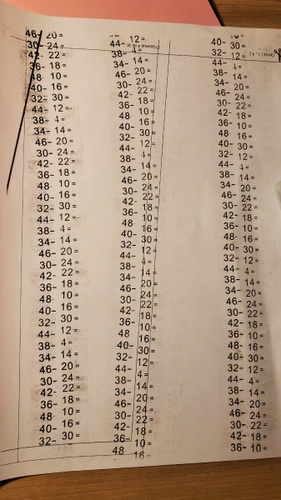 46- 20=
30- 24=
42- 22=
36- 18=
48- 10=
40- 16=
32- 30=
44- 12=
38- 4=
34- 14=
46- 20=
30- 24=
42- 22=
36- 18=
48- 10=
40- 16=
32- 30=
44- 12=
38- 4=
34- 14=
46- 20=
30- 24=
42- 22=
36- 18=
48- 10=
40- 16=
32- 30=
44- 12=
38- 4=
34- 14=
46- 20=
30- 24=
42- 22=
36- 18=
48- 10=
40- 16=
32- 30=
44- 12=
38- 4=
34- 14=
46- 20=
30- 24=
42- 22=
36- 18=
48- 10=
40- 16=
32- 30=
44- 12=
38- 4=
34- 14=
46- 20=
30- 24=
42- 22=
36- 18=
48- 10=
40- 16=
32- 30=
44- 12=
38- 4=
34- 14=
46- 20=
30- 24=
42- 22=
36- 18=
48- 10=
40- 16=
32- 30=
44- 12=
38- 4=
34- 14=
46- 20=
30- 24=
42- 22=
36- 18=
48- 10=
16=
40- 30=
32- 12=
44- 4=
38- 14=
34- 20=
46- 24=
30- 22=
42- 18=
36- 10=
48- 16=
40- 30=
32- 12=
44- 4=
38- 14=
34- 20=
46- 24=
30- 22=
42- 18=
36- 10=
48- 16=
40- 30=
32- 12=
44- 4=
38- 14=
34- 20=
46- 24=
30- 22=
42- 18=
36- 10=
48- 16=
40- 30=
32- 12=
44- 4=
38- 14=
34- 20=
46- 24=
30- 22=
42- 18=
36- 10=